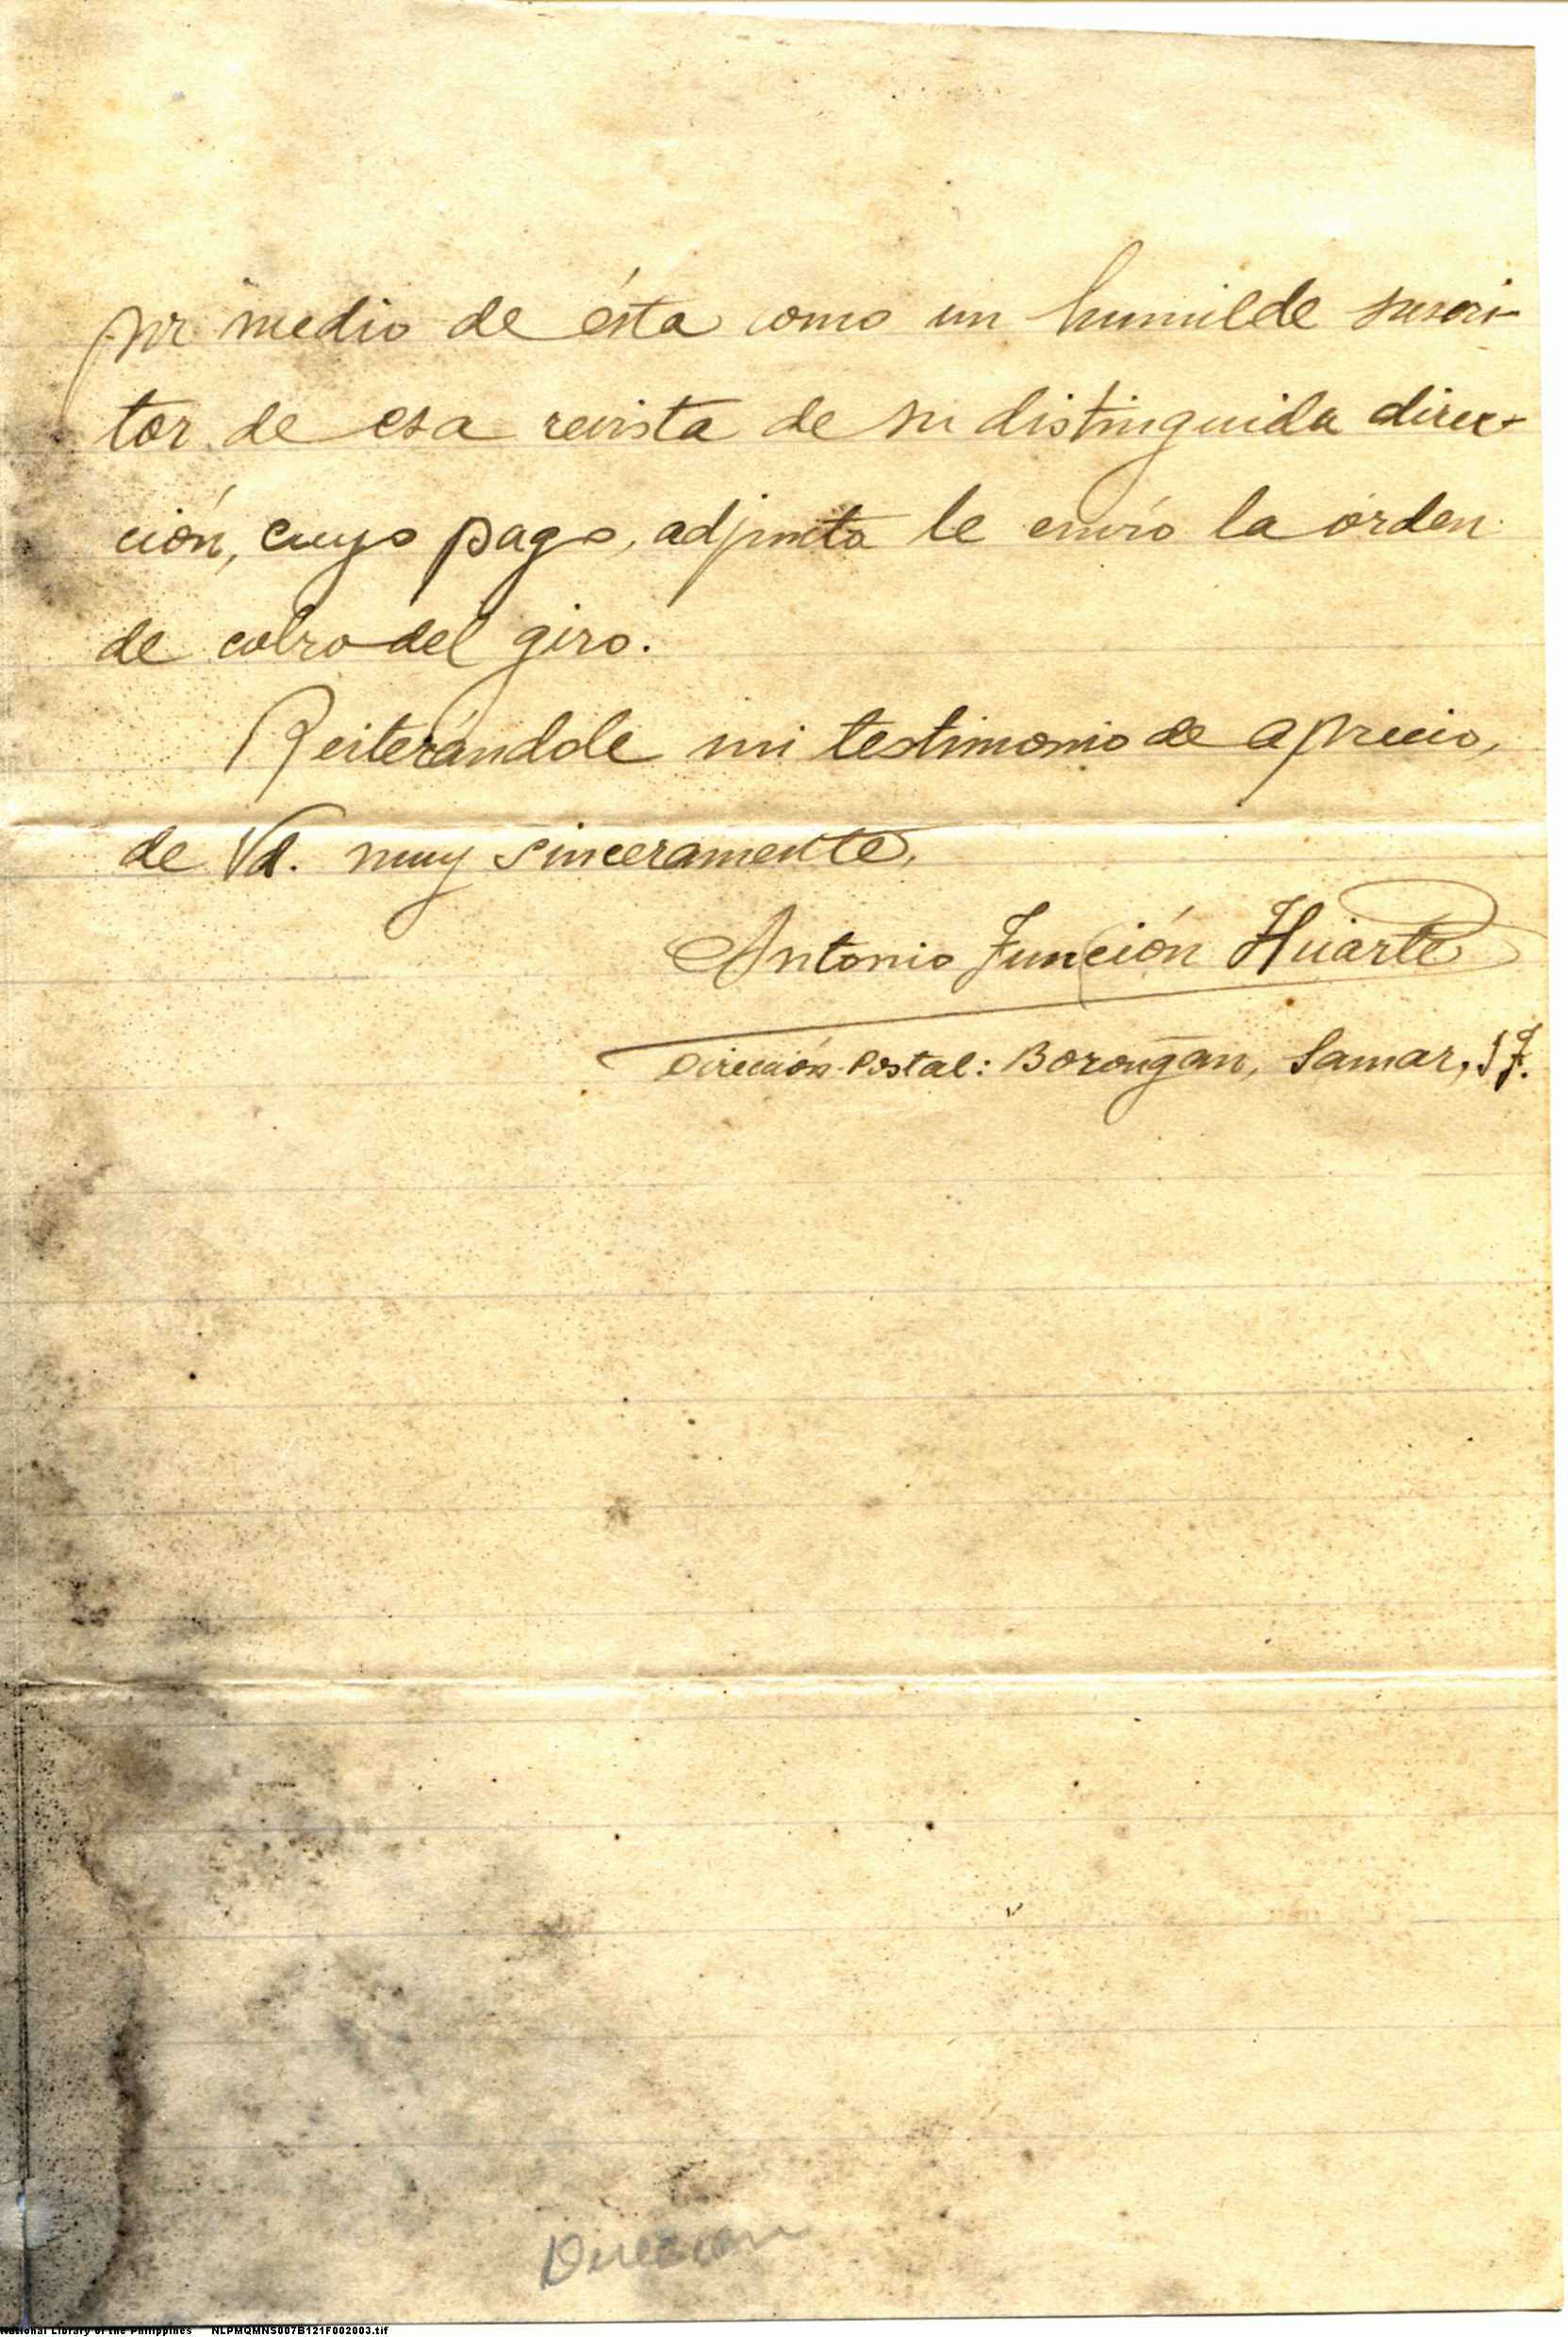 por medio de ésta como un humilde suscri-
tor de esa revista de su distinguida direc-
ción, cuyo pago, adjunta le envío la órden
de cobro del giro.
Reiterándole mi testimonio de aprecio,
de Vd. muy sinceramente,
Antonio Función Huarte
Dirección Postal: Borongan, Samar, I.F.
Direccion
National Library of the Philippines NLPMQMNS007B121F002003.tif